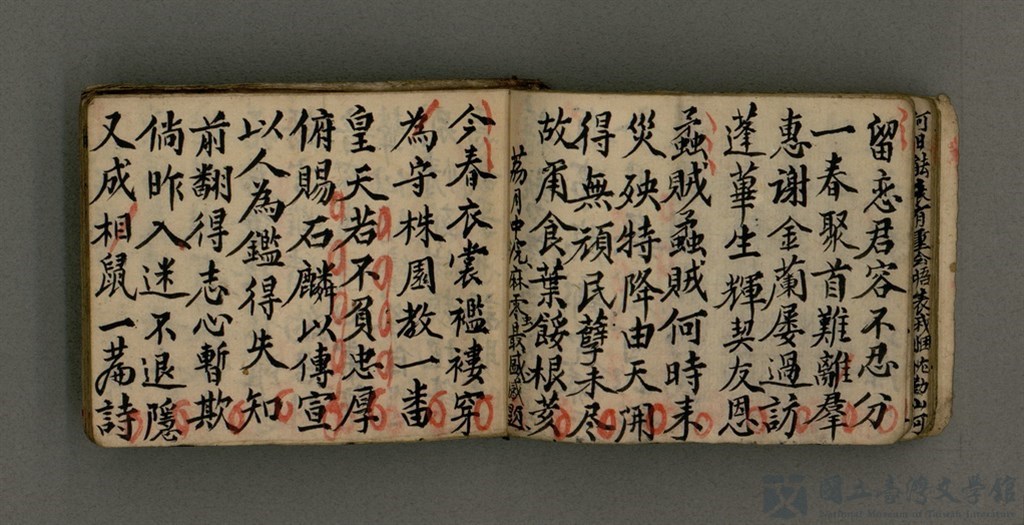 留恋君容不忍分
一春聚首難離羣
惠谢金蘭屡過訪
蓬蓽生輝契友恩
蟊賊蟊賊何時来
災殃特降由天開
得無頑民孽未尽
故甭食葉餒根荄
今春衣裳襤褸穿
為守株園教一畨
皇天若不負忠厚
俯賜石麟以傳宣
以人為鑑得失知
前翻得志心暫欺
倘昨入迷不退隱
又成相鼠一篇詩
國立臺灣文學館
National Museum of Taiwan Literature